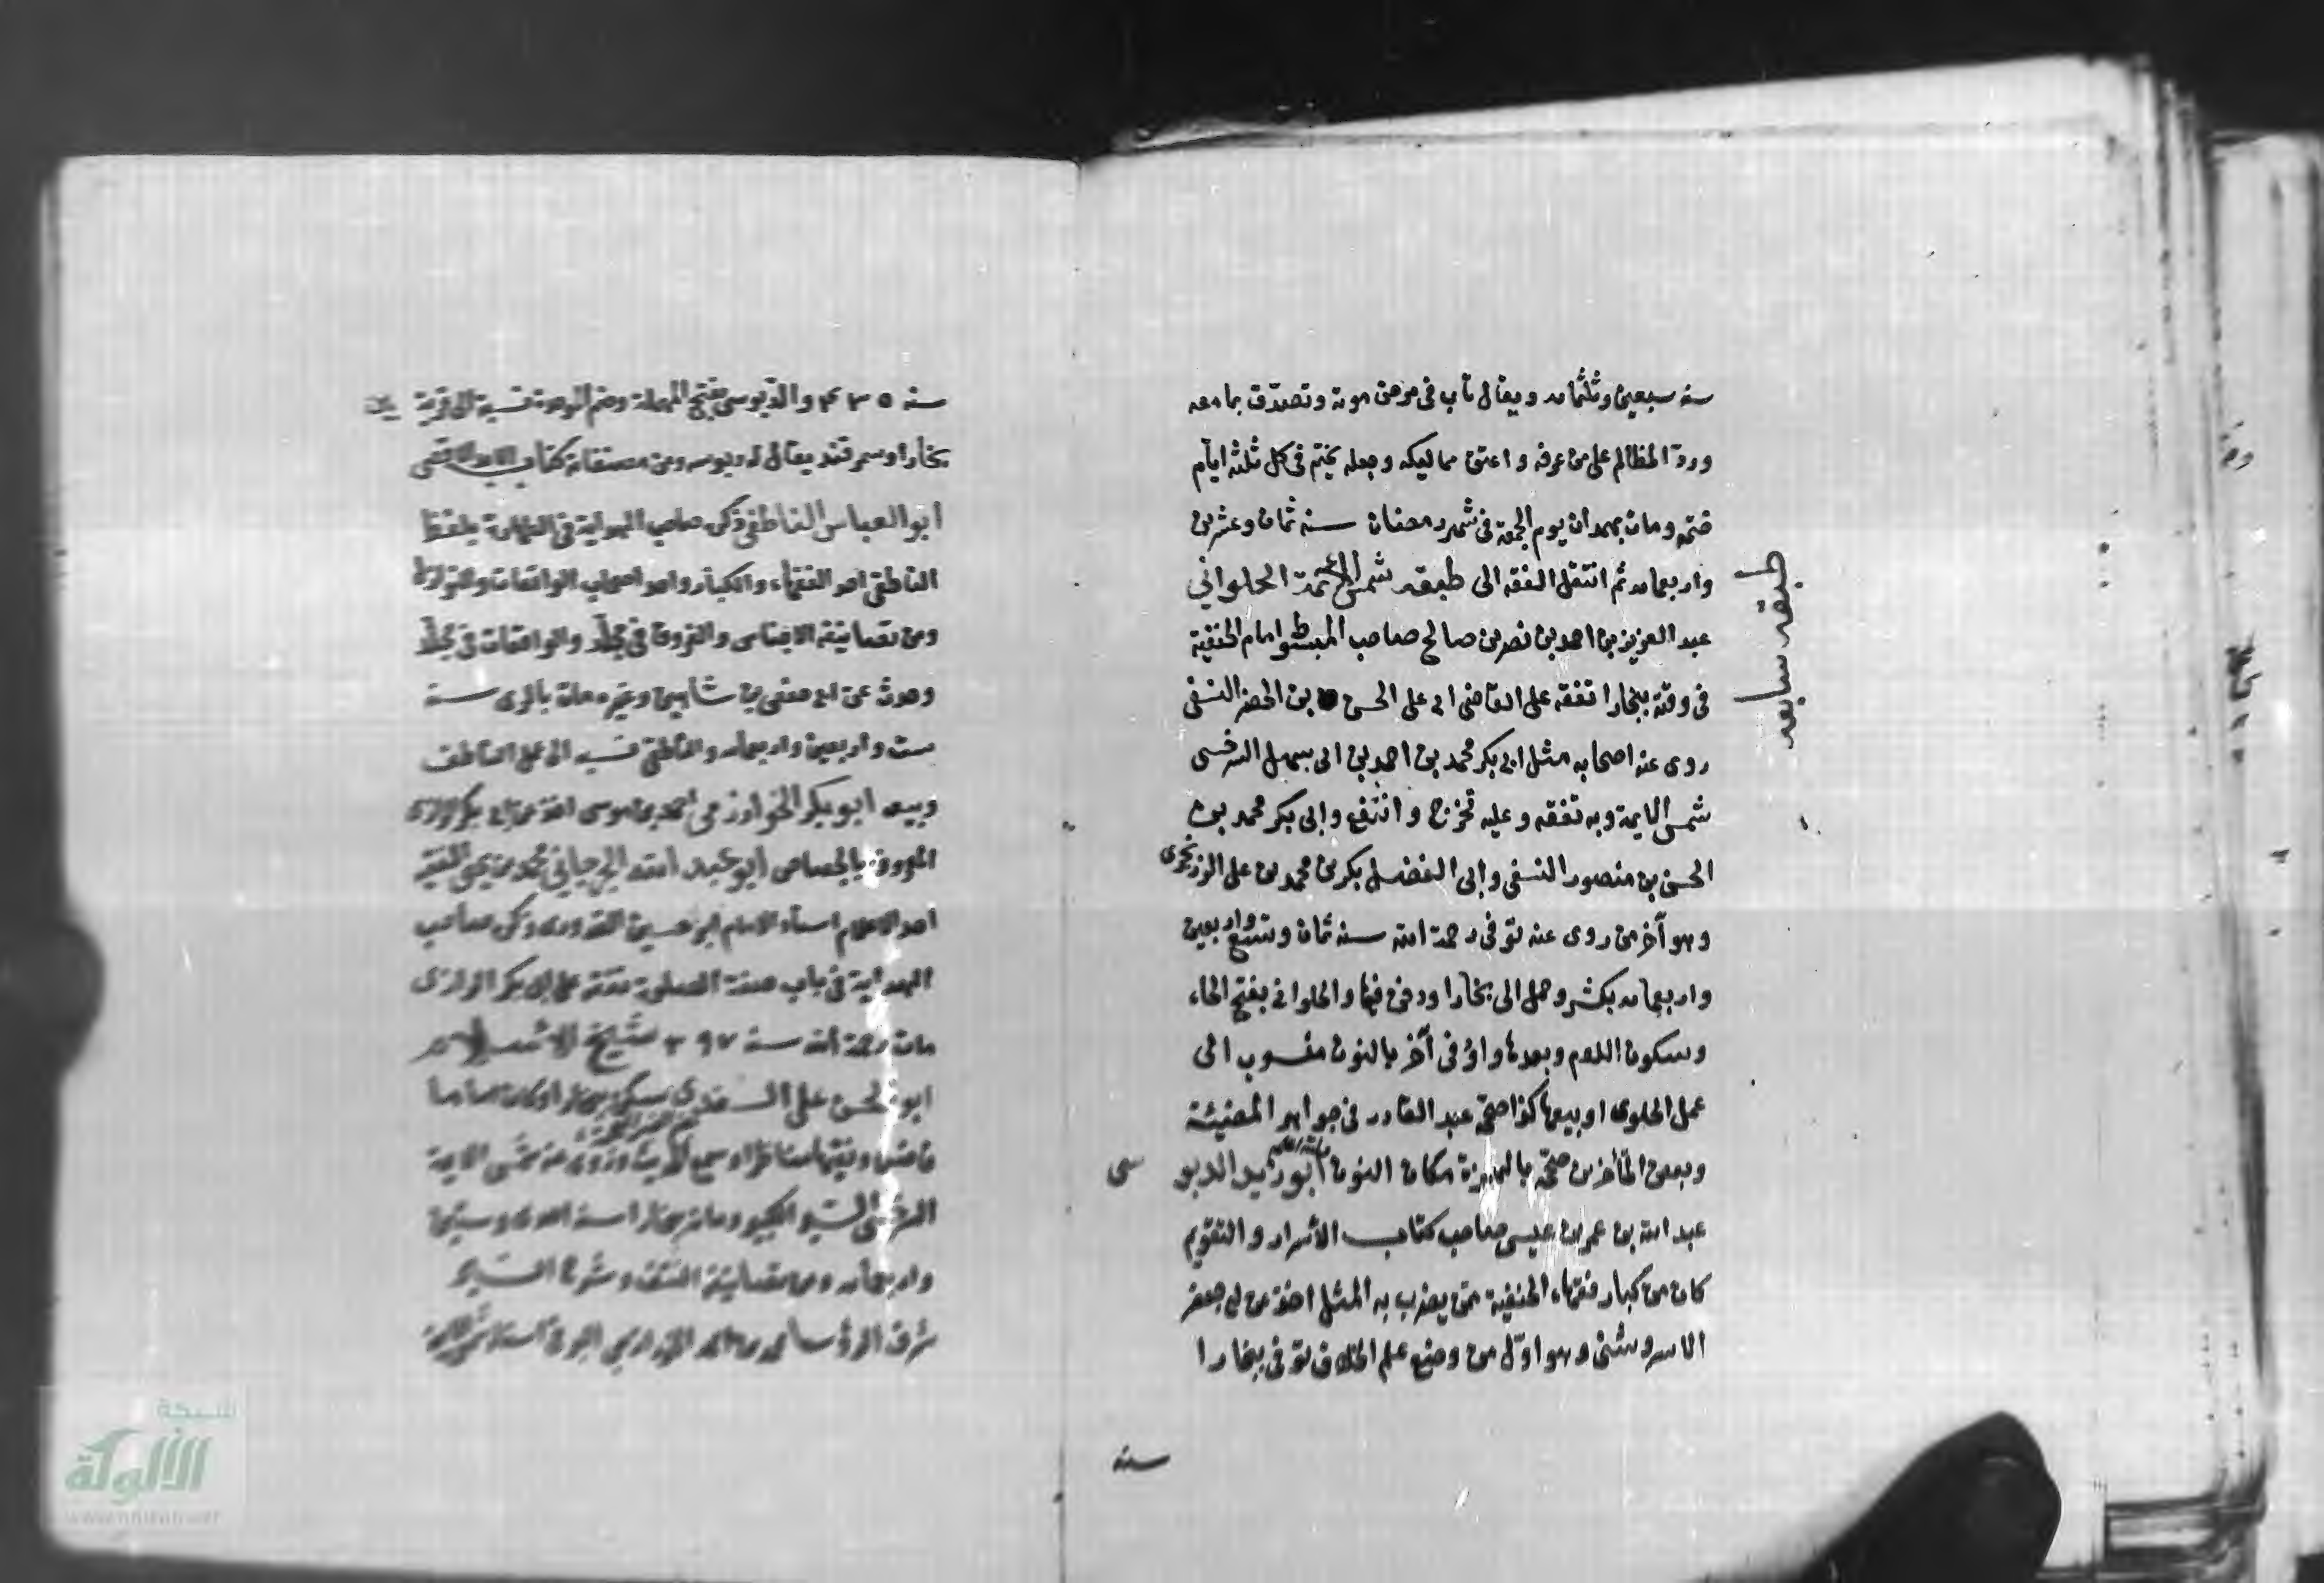 سنة سبعين وثلثمائة ويقال تاب فى مرض موته وتصدق بما معه
وردّ المظالم على من عرفه واعتق مماليكه وجعله يختم فى كل ثلثة ايام
ختمه ومات بهمدان يوم الجمعة فى شهر رمضان سنة ثمان وعشرين
واربعمائة ثم انتقل الفقه الى طبقة شمس الائمة الحلوانى
عبد العزيز بن احمد بن نصر بن صالح صاحب المبسوط امام الحنفية
فى وقته ببخارا تفقه على القاضى ابى على الحسن بن الخضر النسفى
روى عنه اصحابه مثل ابى بكر محمد بن احمد بن ابى سهل السرخسى
شمس الايمة وبه تفقه وعليه تخرج وانتفع وابى بكر محمد بن
الحسن بن منصور النسفى وابى الفضل بكر بن محمد بن على الزرنجرى
وهو آخر من روى عنه توفى رحمة الله سنة ثمان واربعين
واربعمائة بكش وحمل الى بخارا ودفن فيها والحلوانى بفتح الحاء
وسكون اللام وبعدها واو فى آخر بالنون منسوب الى
عمل الحلوى او بيعها كذا صحّ عبد القادر فى جواهر المضيئة
وبعض المتأخرين صحّه بالهمزة مكان النون ابو زيد الدبو سى
عبد الله بن عمر بن عيسى صاحب كتاب الأسرار والتقويم
كان من كبار فقهاء الحنفية ممن يضرب به المثل اخذ عن ابى جعفر
الاسروشنى وهو اوّل من وضع علم الخلاف توفى ببخارا
سنة
طبقه سابعه
سنة ٤٣٥ والدبوسى بفتح المهملة وضم الموحدة نسبة الى قرية بين
بخارا وسمرقند يقال له دبوسه ومن مصنفاته كتاب الامد الاقصى
ابو العباس الناطفى ذكره صاحب الهداية فى الطهارة بلفظ
الناطفى احد الفقهاء والكبار واحد اصحاب الواقعات والنوازل
ومن تصانيفه الاجناس والفروق فى مجلّد والواقعات فى مجلّد
وحدث عن ابى حفص بن شاهين وغيره مات بالرى سنة
ست واربعين واربعمائة والناطفى نسبه الى عمل الناطف
وبيعه ابو بكر الخوارزمى محمد بن موسى اخذ عن ابى بكر الرازى
المعروف بالجصاص ابو عبد الله الجرجانى محمد بن يحيى الفقيه
احد الاعلام استاد الامام ابو حسين القدورى ذكره صاحب
الهداية فى باب صفة الصلوة تفقه على ابى بكر الرازى
مات رحمة الله سنة ٣٩٧ شيخ الاسلام
ابو الحسن على السغدى سكن بخارا وكان اماما
فاضلا وفقيها مناظرا وسمع الحديث وروى عنه شمس الايمة
السرخسى السير الكبير ومات ببخارا سنة احدى وستين
واربعمائة ومن تصانيفه النتف وشرح السير
شرف الرؤساء